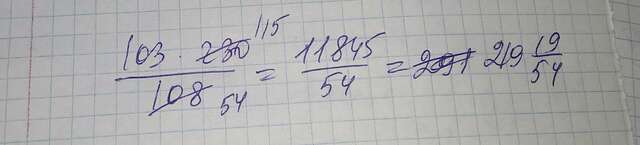 103 · 230 115 / 108 54 = 11845 / 54 = 2091 219 19/54